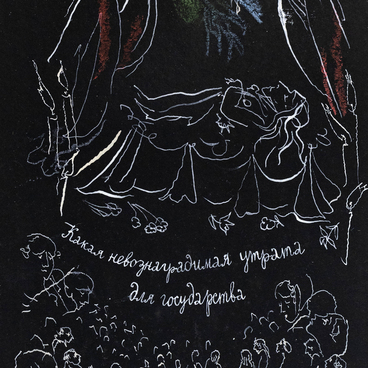 Какая невознаградимая утрата
для государства